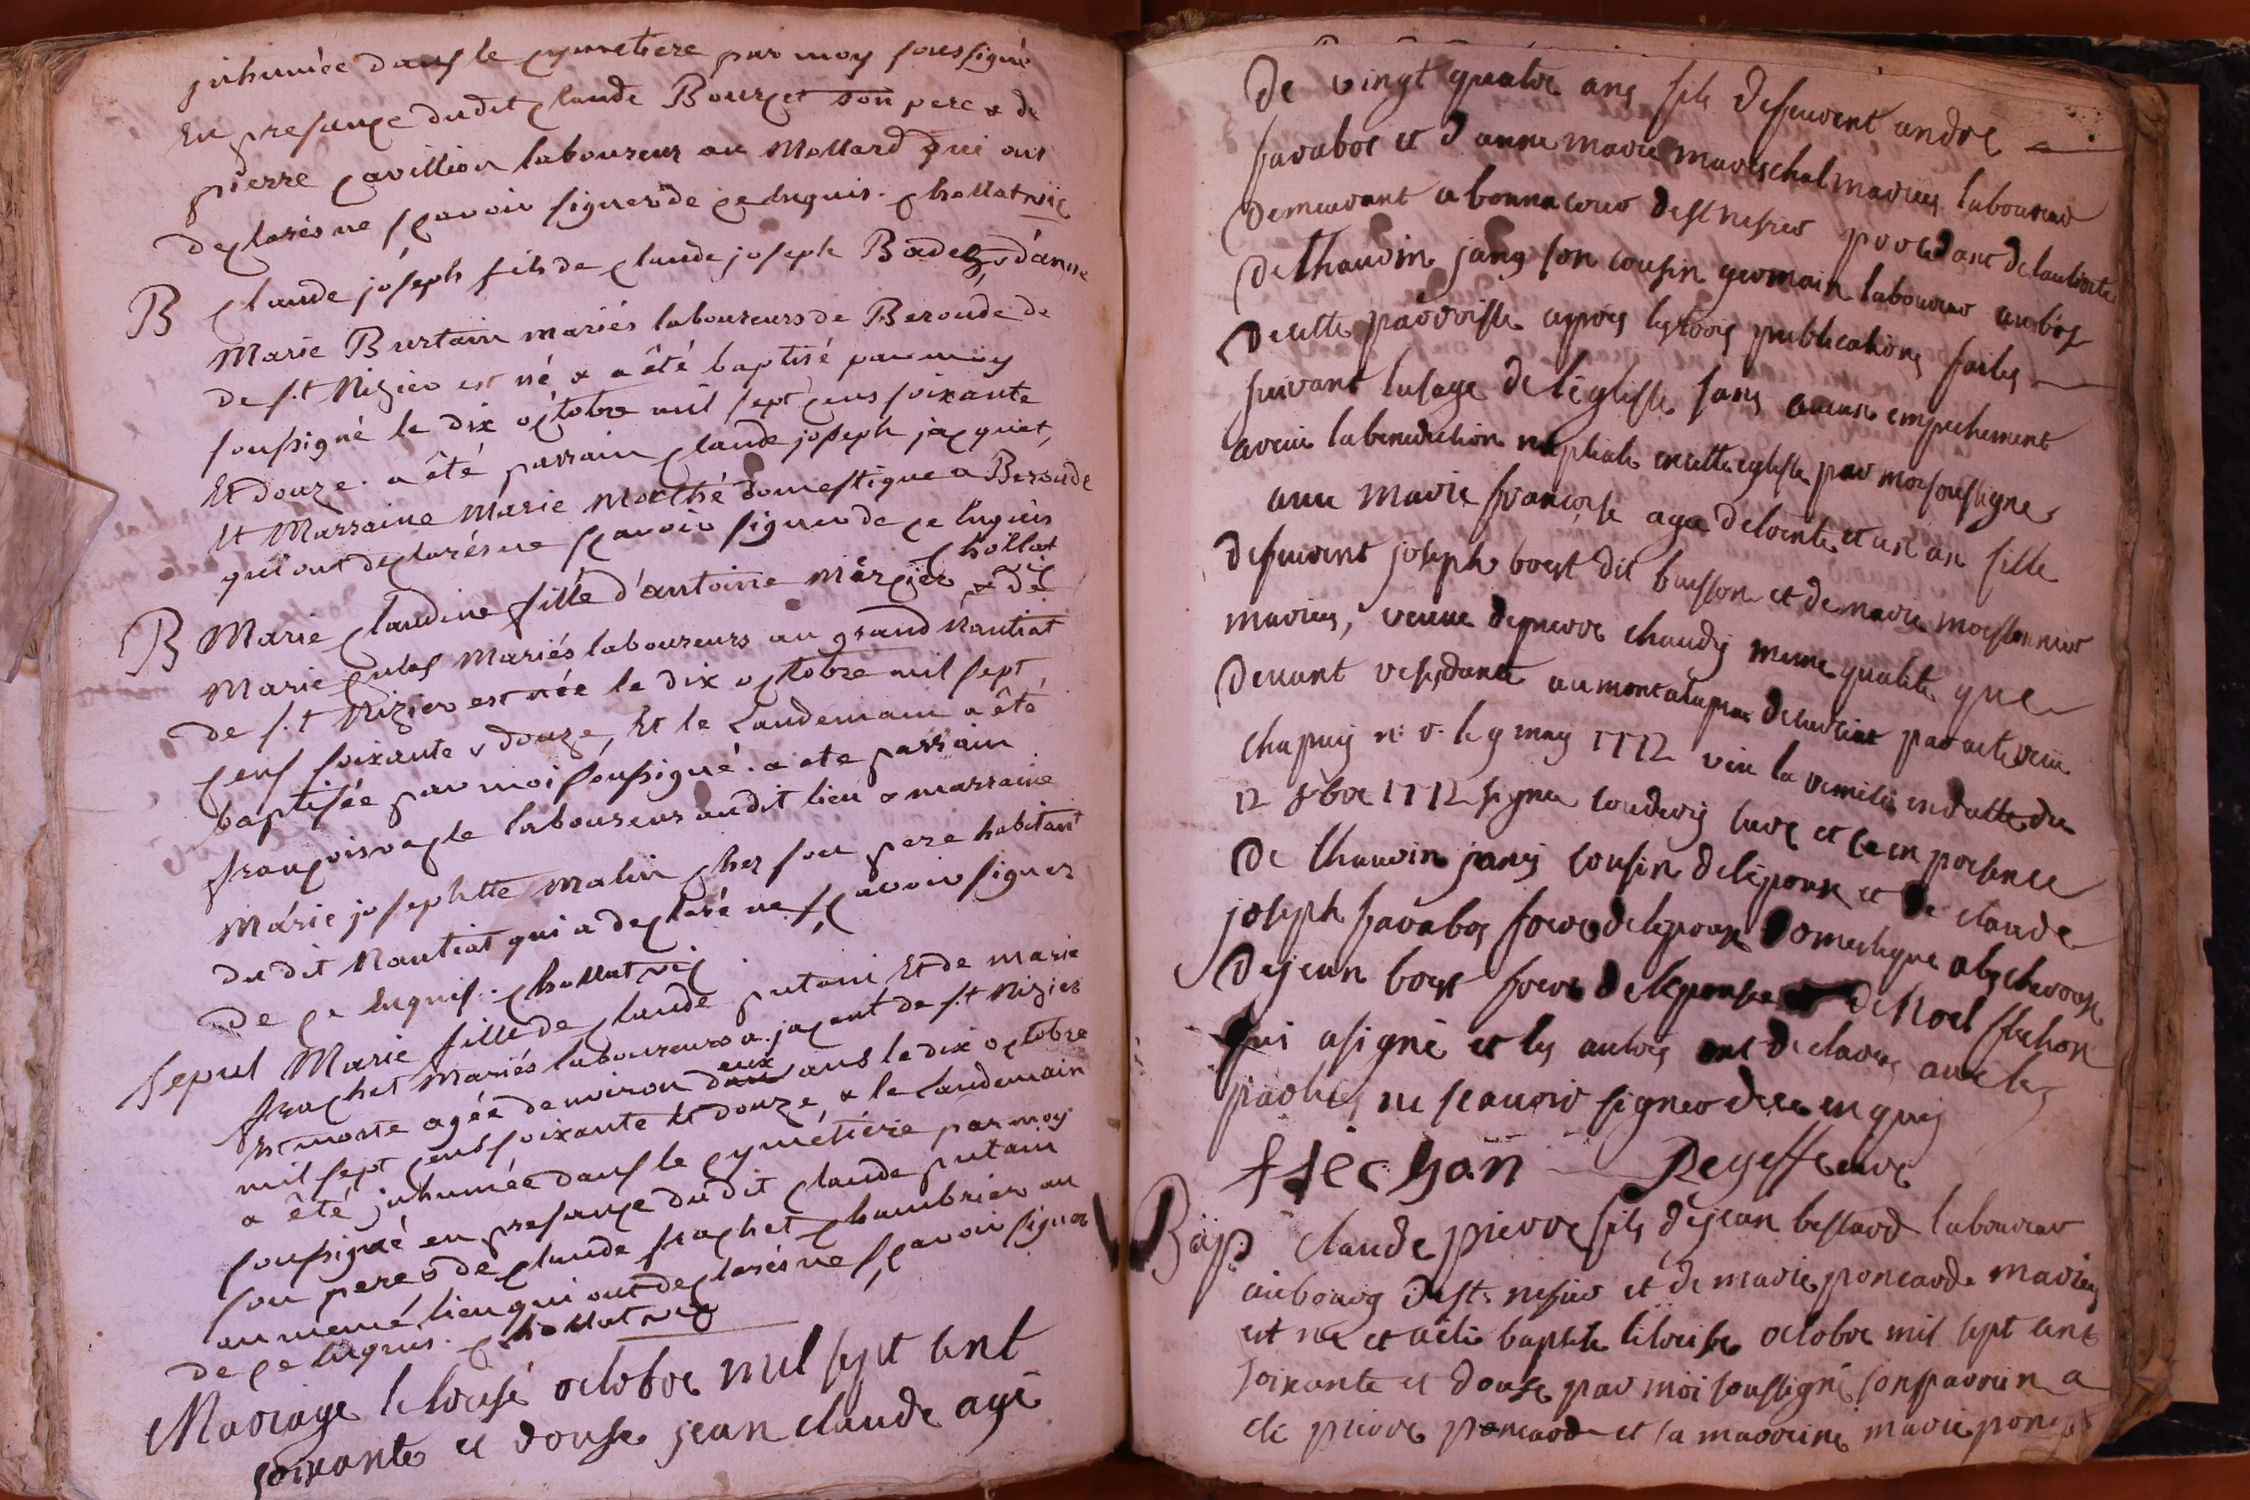 inhumée dans le cymetiere par moy soussigné
En presance dudit claude Bourcet son pere & de
pierre cavillion laboureur au Mollard qui ont
declarés ne scavoir signer de ce Enquis. chollat vic
B claude joseph fils de claude joseph Badez & d'anne
Marie Burtain mariés laboureurs de Beroude de
de s.t Nizier est né & a été baptisé par moy
soussigné le dix octobre mil sept cens soixante
Et douze. a été parrain claude joseph jacquet,
Et Marraine Marie Morthé domestique a Beroude
qui ont declarés ne scavoir signer de ce Enquis
chollat vic
B Marie claudine fille d'antoine Mercier & de
Marie Mariés laboureurs au grand Nantiat
de s.t Nizier est née le dix octobre mil sept
cens soixante & douze, Et le Landemain a été
baptisée par moi soussigné. a ete parrain
françois laboureur audit lieu & marraine
Marie josephtte Malin chez son pere habitant
du dit Nantiat qui a declaré ne scavoir signer
de ce Enquis. chollat vic
sepul Marie fille de claude putain Et de marie
frachet Mariés laboureurs a jacent de s.t Nizier
Est morte agée denviron deux ans le dix octobre
mil sept cens soixante Et douze & le Landemain
a été inhumée dans le cymétiére par moy
soussigné en presance du dit claude putain
son pere & de claude frachet chambrier au
au meme lieu qui ont declarés ne scavoir signer
de ce Enquis. chollat vic
Mariage le octobre mil sept cent
soixante et douse jean claude agé
De vingt quatre ans fils defeuvent andre
favabos et d anne marie mareschal mariés laboureur
demeurant a bonnacour de st nesier procedant de lautorité
de thauvin jany son cousin germain laboureur
de cette parroisse après les trois publications faites
suivant lusage de leglisse sans aucun empechement
avecu la benediction nuptiale en cette eglise par moi soussigne
avec marie françoise agee de trente et un an fille
defeuvent joseph boest dit buisson et de marie moissonnier
mariés, veuve de pierre chaudy meme qualité que
devant residante au par acte recu
chapuis n: r. le 9 may 1772 veu la remise en datte du
12 8bre 1772 signee cure et ce en presence
de thauvin jany cousin de lepoux et de claude
joseph favabos frere de lepoux domestique
de jean boest frere de lepouse de Noel frechon
qui a signé et les autres ont declaré avec les
parties ne scavoir signer de ce enquis
frechon Regeffe cure
Bap claude pierre fils de jean bestard laboureur
au bourg de st. nesier et de marie poncarde mariés
est né et aété baptisé le octobre mil sept cent
soixante et douse par moi soussigné son parrein a
ete pierre poncard et sa marreine marie